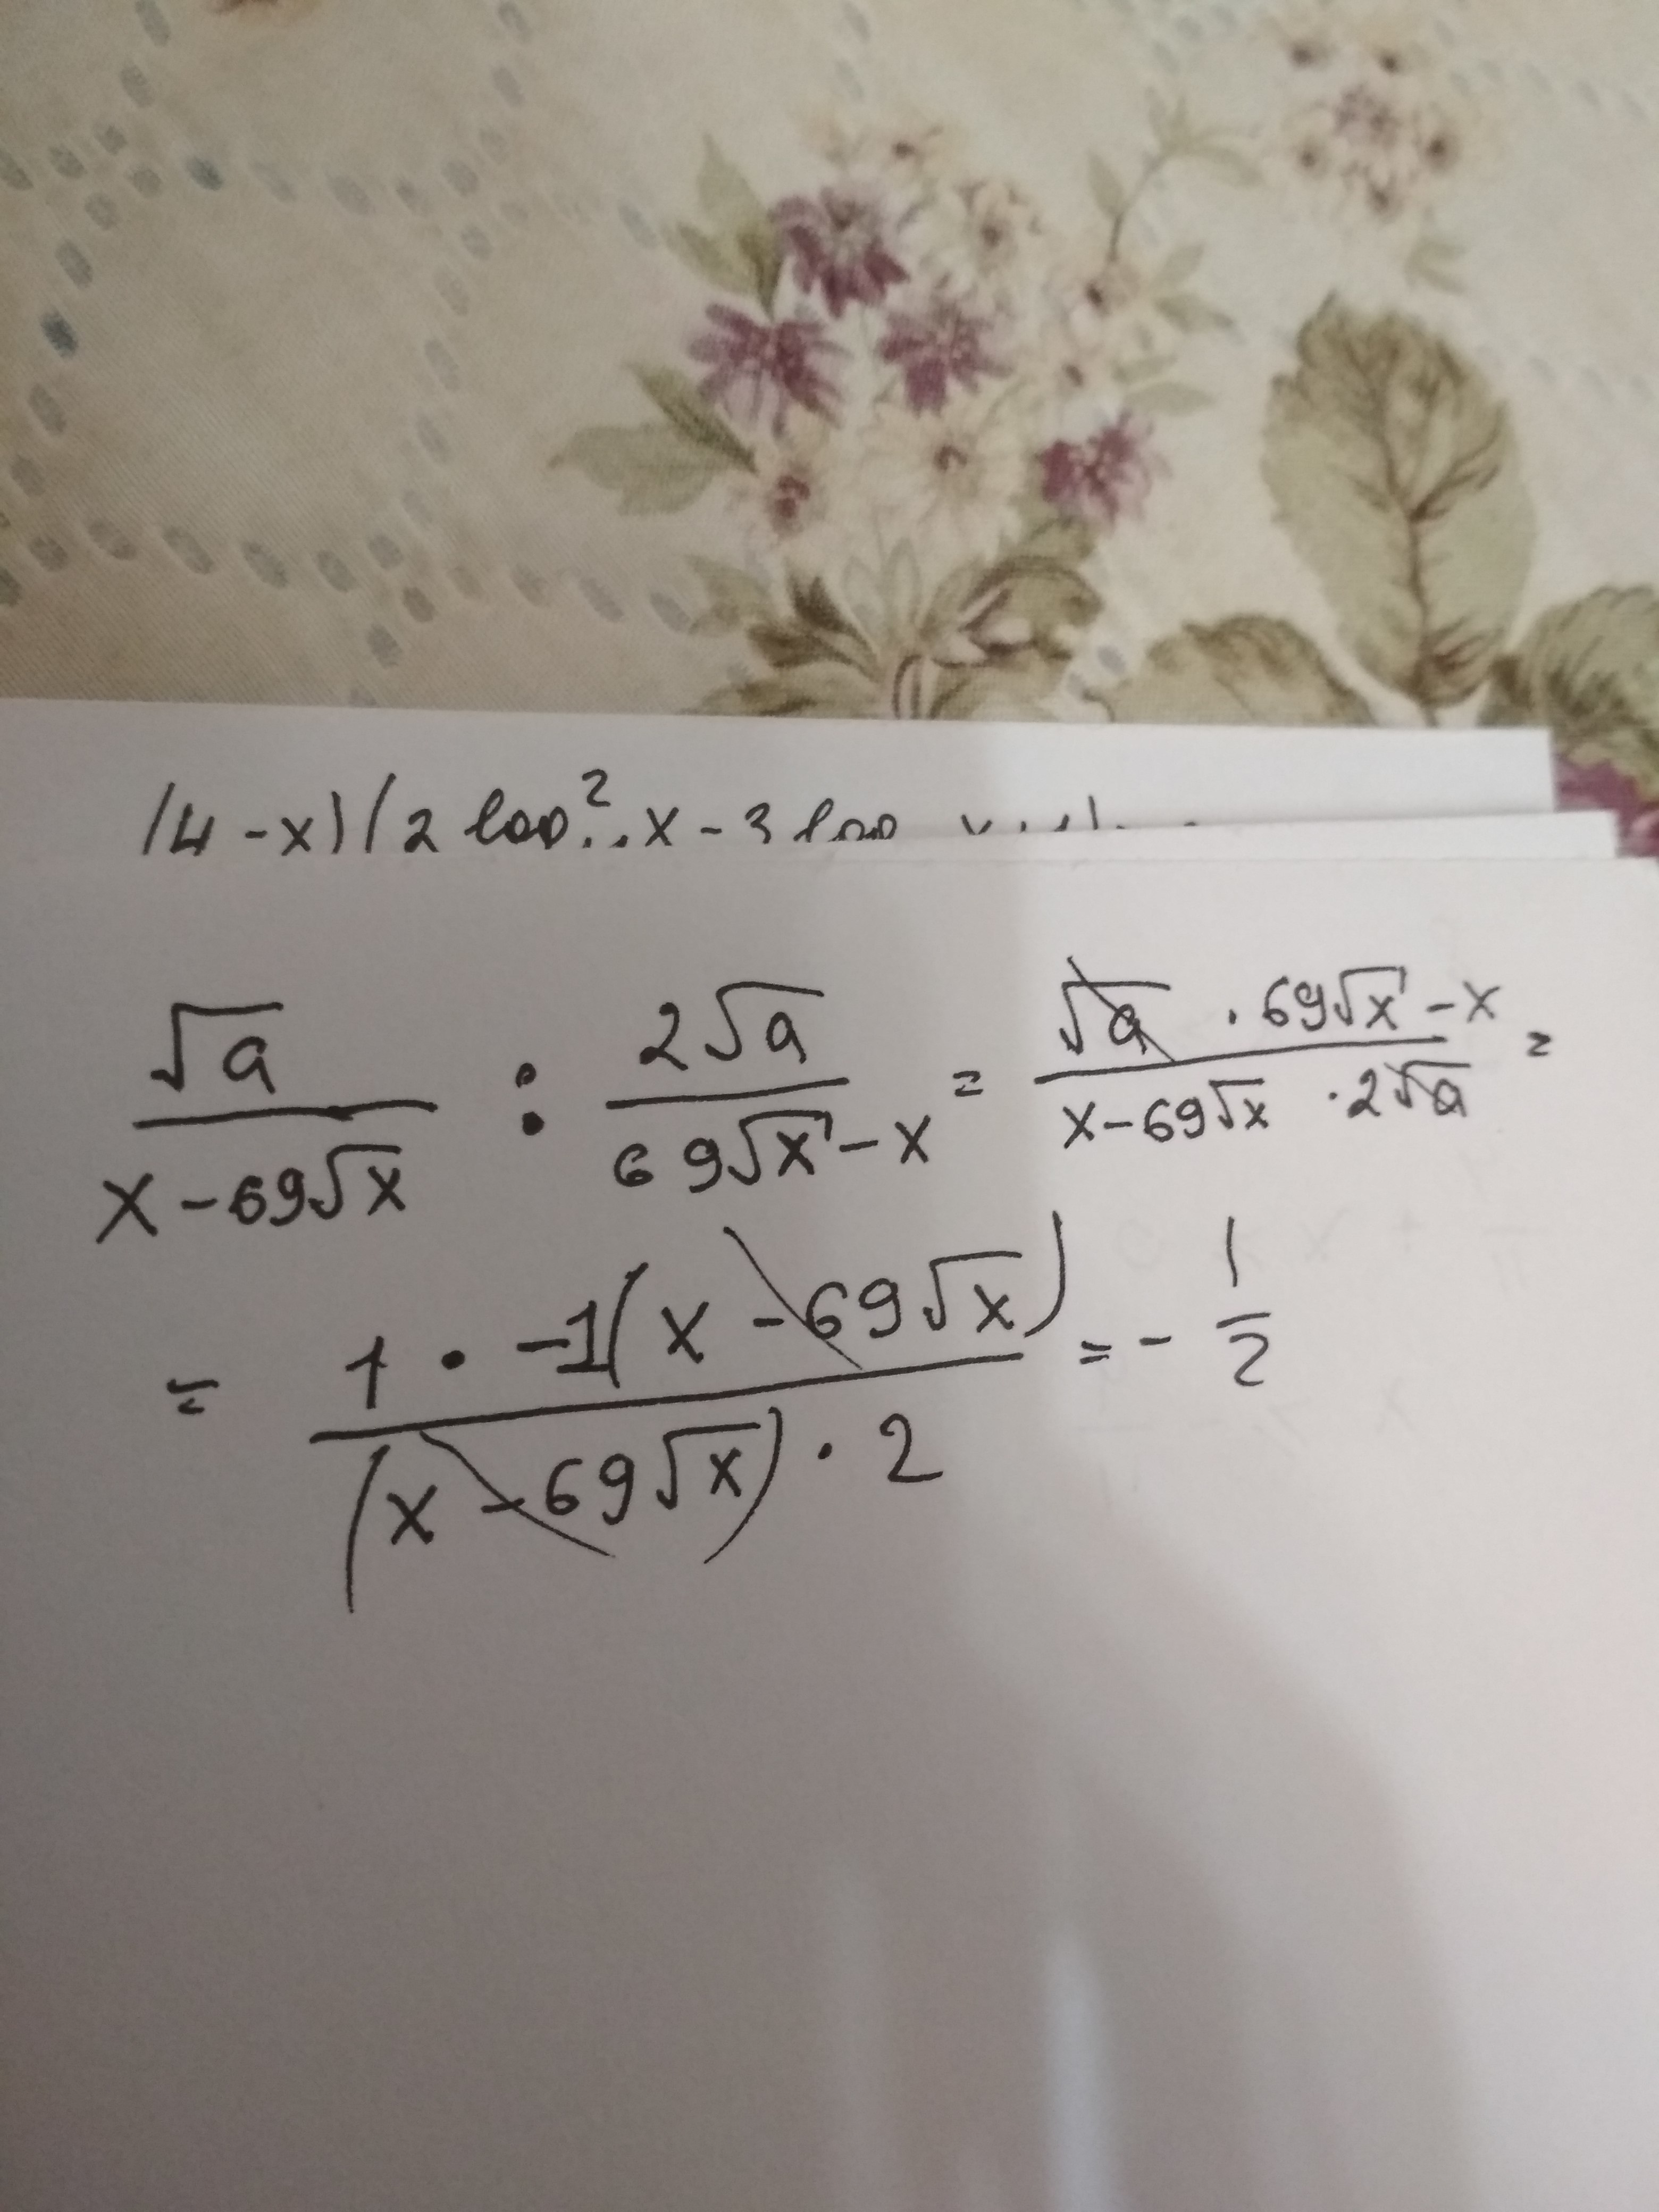 (4-x)(2 log² x - 3 log
√a / x-69√x : 2√a / 69√x-x = √a · 69√x-x / x-69√x · 2√a =
= 1 · -1(x-69√x) / (x-69√x) · 2 = - 1/2